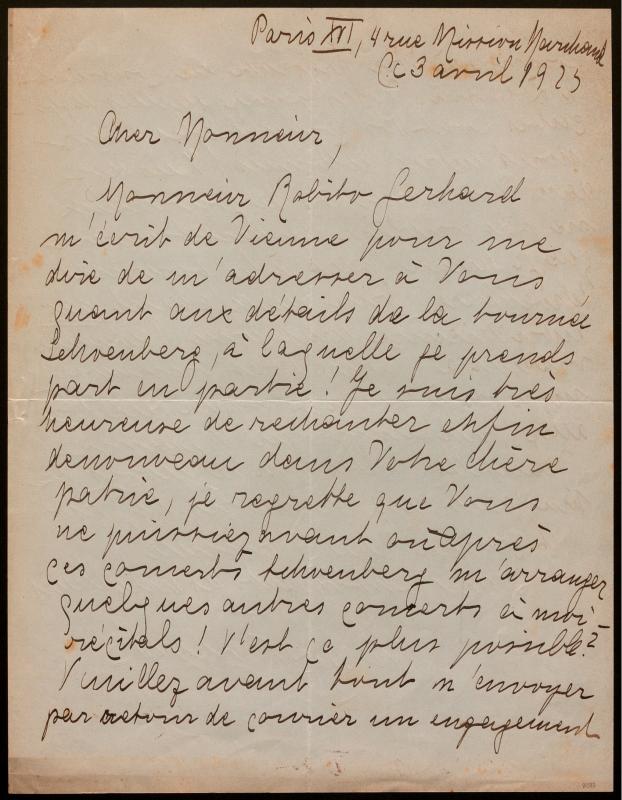 Paris XVI, 4 rue Mission Marchand
Ce 3 avril 1925
Cher Monsieur,
Monsieur Robito Gerhard
m'écrit de Vienne pour me
dire de m'adresser à Vous
quant aux détails de la tournée
Schoenberg, à laquelle je prends
part en partie! Je suis très
heureuse de rechanter enfin
denouveau dans Votre chère
patrie, je regrette que Vous
ne puissiez avant ou après
ces concerts Schoenberg m'arranger
quelques autres concerts à moi-
récitals! N'est ce plus possible?
Vuillez avant tout m'envoyer
par retour de courier un engagement